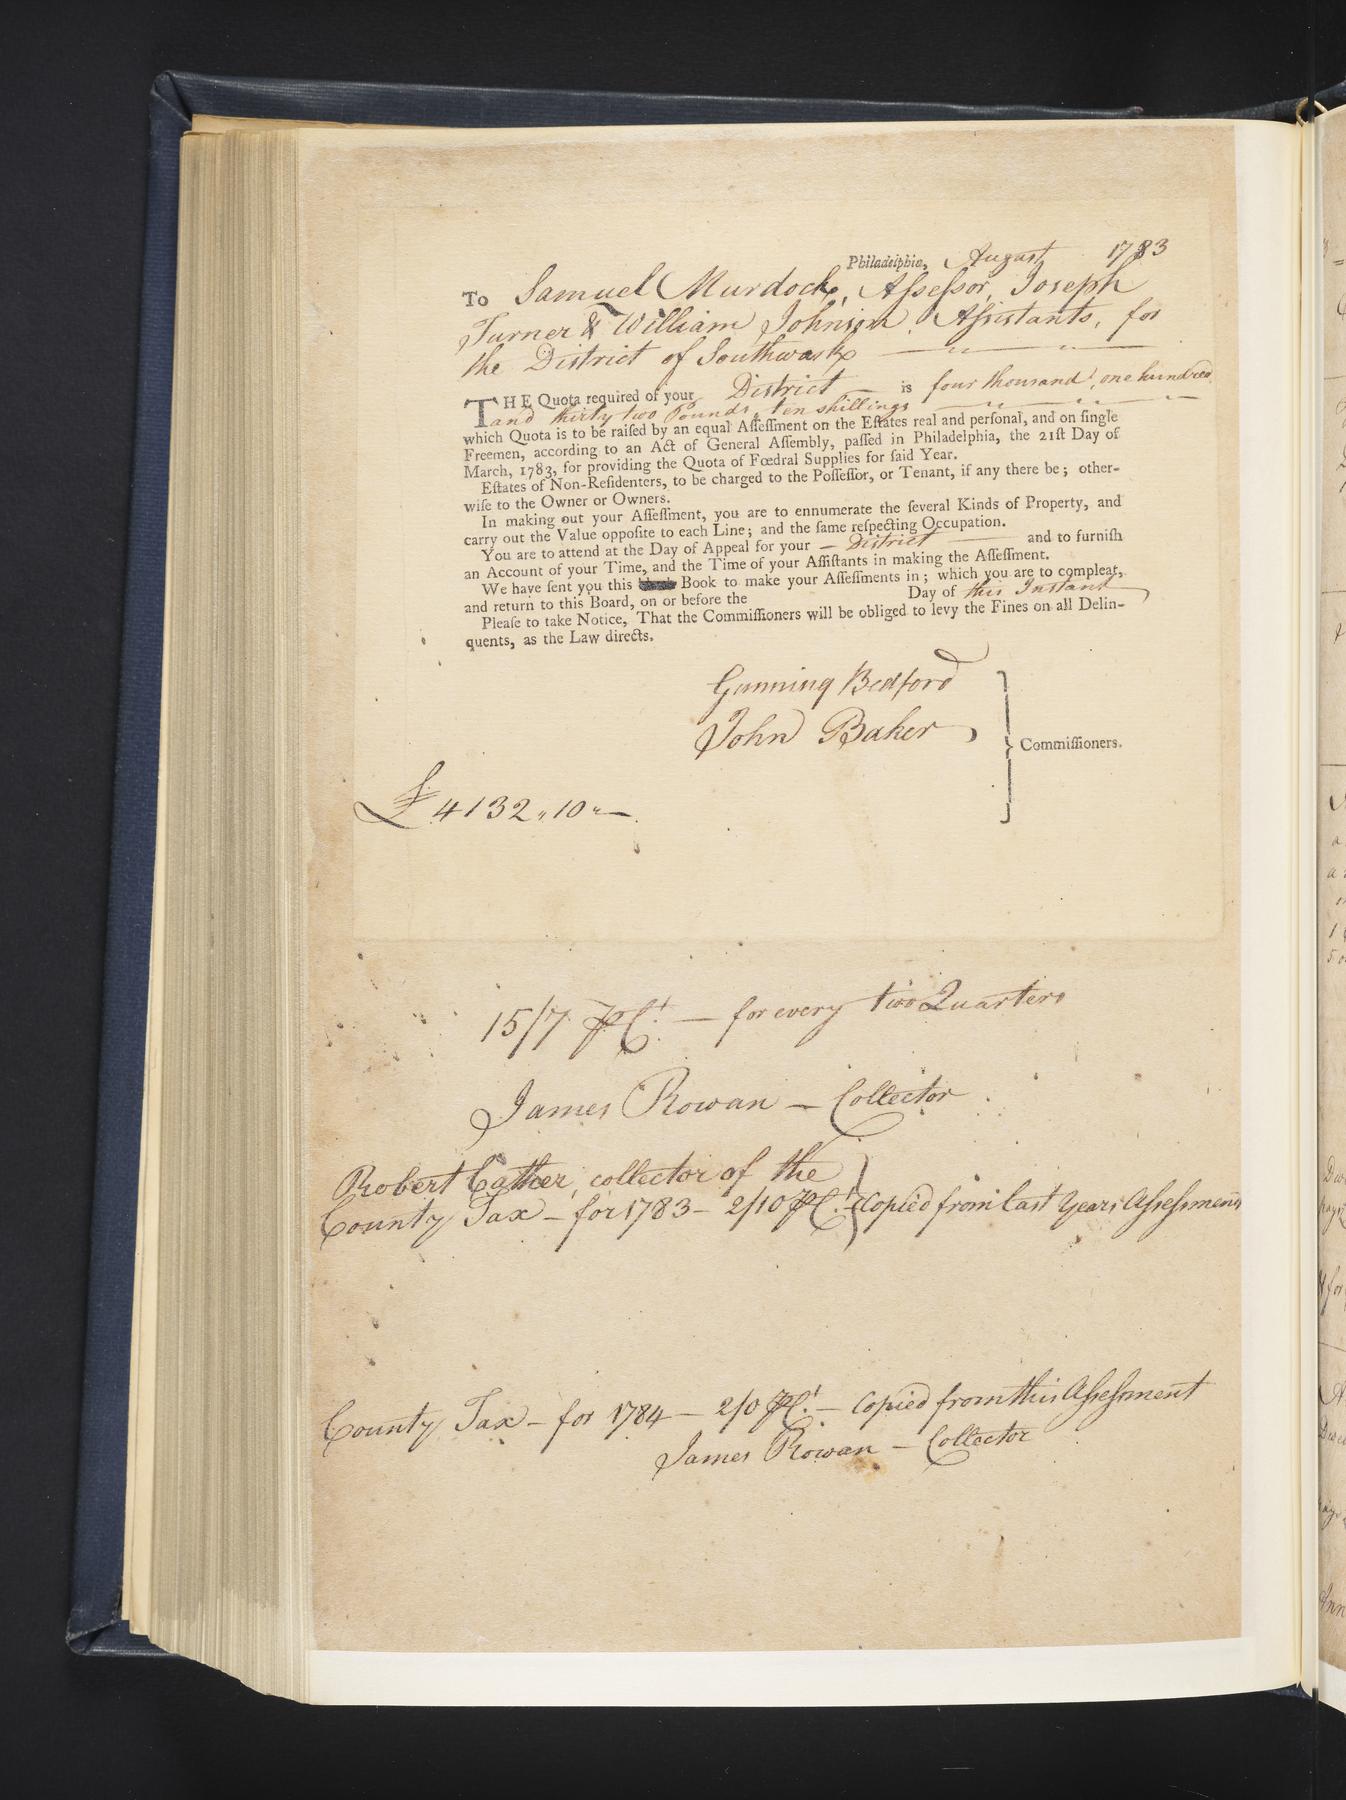 Philadelphia, August 1783
To Samuel Murdock, Aſseſsor, Joseph
Turner & William Johnson, Aſsistants, for
the District of Southwark
THE Quota required of your District is four thousand, one hundred
and thirty two Pounds, ten shillings
which Quota is to be raiſed by an equal Aſſeſſment on the Eſtates real and perſonal, and on ſingle
Freemen, according to an Act of General Aſſembly, paſſed in Philadelphia, the 21ſt Day of
March, 1783, for providing the Quota of Fœdral Supplies for ſaid Year.
Eſtates of Non-Reſidenters, to be charged to the Poſſeſſor, or Tenant, if any there be; other-
wiſe to the Owner or Owners.
In making out your Aſſeſſment, you are to ennumerate the ſeveral Kinds of Property, and
carry out the Value oppoſite to each Line; and the ſame reſpecting Occupation.
You are to attend at the Day of Appeal for your — District — and to furniſh
an Account of your Time, and the Time of your Aſſiſtants in making the Aſſeſſment.
We have ſent you this Book to make your Aſſeſſments in; which you are to compleat,
and return to this Board, on or before the Day of this Instant
Pleaſe to take Notice, That the Commiſſioners will be obliged to levy the Fines on all Delin-
quents, as the Law directs.
Gunning Bedford
John Baker
Commiſſioners.
£4132,,10,,—
15/7 ⅌ Ct. — for every two Quarters
James Rowan — Collector
Robert Cather, collector of the
County Tax — for 1783 — 2/10 ⅌ Ct. } Copied from last Years Aſseſsment
County Tax — for 1784 — 2/0 ⅌ Ct. — Copied from this Aſseſsment
James Rowan — Collector